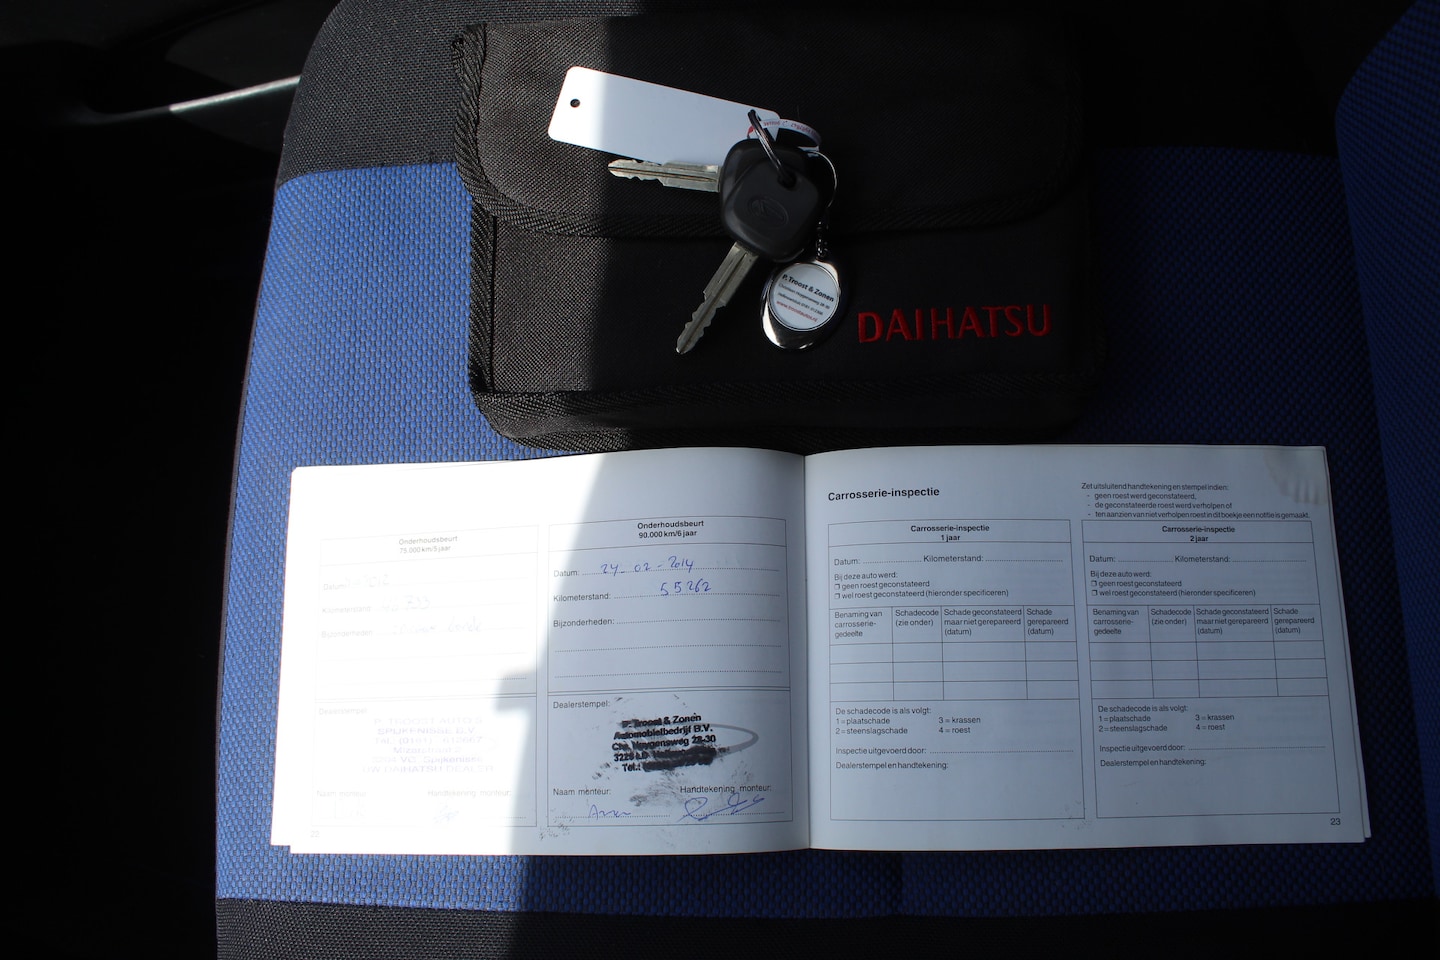 P. Troost & Zonen
DAIHATSU
Onderhoudsbeurt
75.000 km/5 jaar
Datum:
Kilometerstand:
Bijzonderheden:
Dealerstempel:
P. TROOST AUTO'S
SPIJKENISSE B.V.
Naam monteur:
Handtekening monteur:
22
Onderhoudsbeurt
90.000 km/6 jaar
Datum: 24-02-2014
Kilometerstand: 55262
Bijzonderheden:
Dealerstempel:
P. Troost & Zonen
Automobielbedrijf B.V.
Chr. Huygensweg 28-30
Tel.:
Naam monteur:
Handtekening monteur:
Carrosserie-inspectie
Zet uitsluitend handtekening en stempel indien:
- geen roest werd geconstateerd,
- de geconstateerde roest werd verholpen of
- ten aanzien van niet verholpen roest in dit boekje een notitie is gemaakt.
Carrosserie-inspectie
1 jaar
Datum: Kilometerstand:
Bij deze auto werd:
❒ geen roest geconstateerd
❒ wel roest geconstateerd (hieronder specificeren)
Benaming van carrosserie-gedeelte
Schadecode (zie onder)
Schade geconstateerd maar niet gerepareerd (datum)
Schade gerepareerd (datum)
De schadecode is als volgt:
1 = plaatschade 3 = krassen
2 = steenslagschade 4 = roest
Inspectie uitgevoerd door:
Dealerstempel en handtekening:
Carrosserie-inspectie
2 jaar
Datum: Kilometerstand:
Bij deze auto werd:
❒ geen roest geconstateerd
❒ wel roest geconstateerd (hieronder specificeren)
Benaming van carrosserie-gedeelte
Schadecode (zie onder)
Schade geconstateerd maar niet gerepareerd (datum)
Schade gerepareerd (datum)
De schadecode is als volgt:
1 = plaatschade 3 = krassen
2 = steenslagschade 4 = roest
Inspectie uitgevoerd door:
Dealerstempel en handtekening:
23